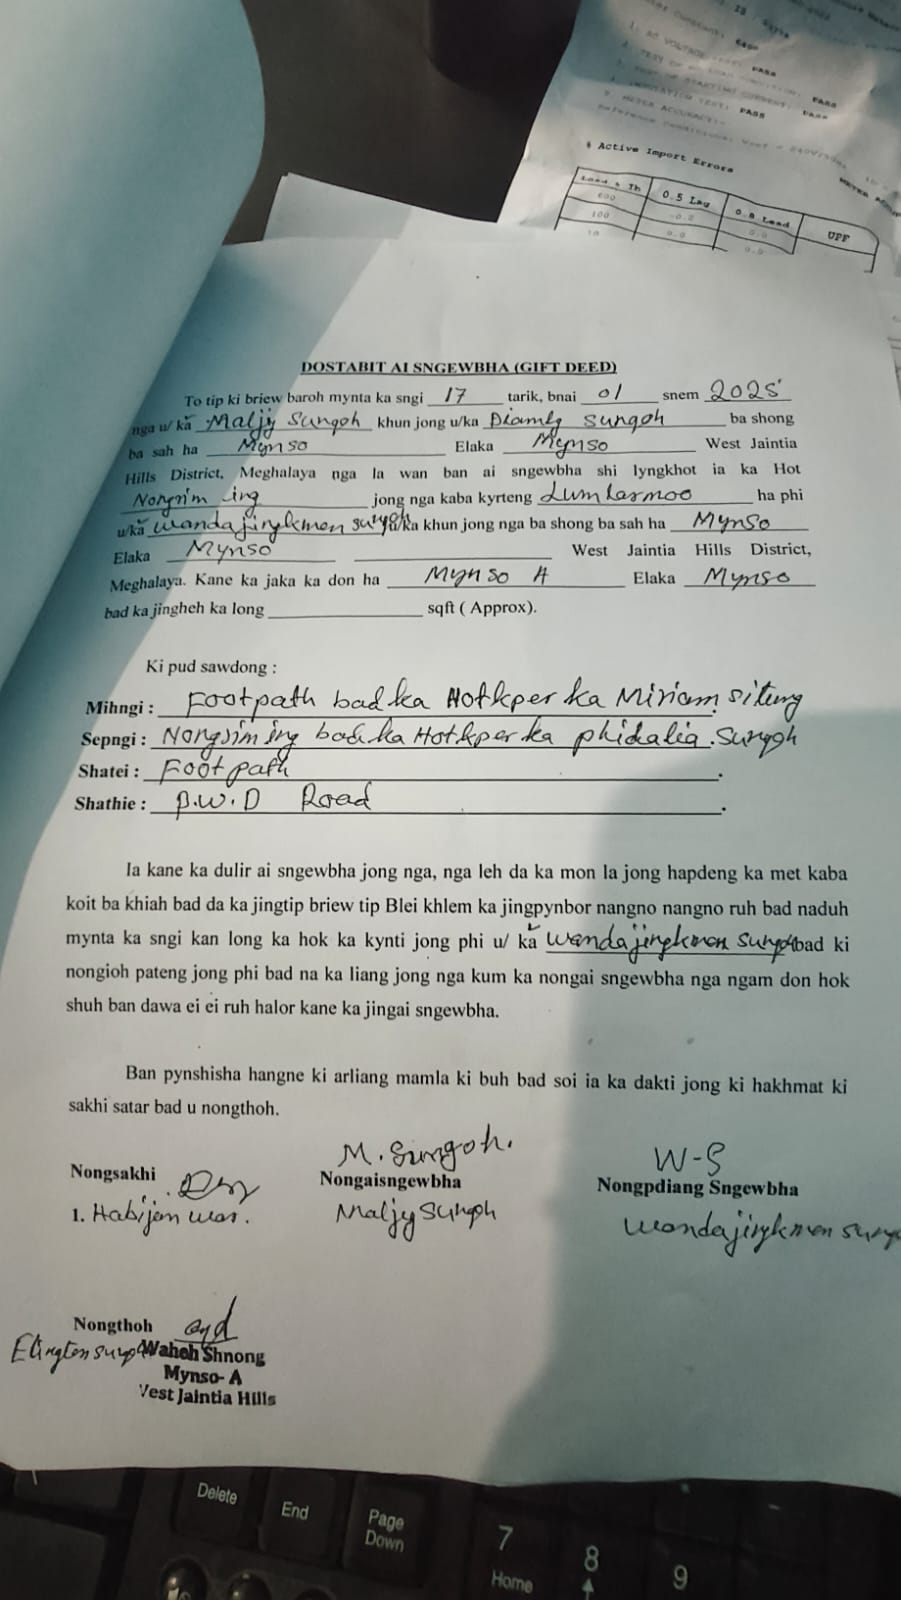 1. AC VOLTAGE TEST: PASS
PASS
INSULATION TEST: PASS
PASS
5. METER ACCURACY:-
# Active Import Errors
Load % Ib 0.5 Lag 0.8 Lead UPF
600 -0.0 0.0
100 0.0 0.0
10
DOSTABIT AI SNGEWBHA (GIFT DEED)
To tip ki briew baroh mynta ka sngi 17 tarik, bnai 01 snem 2025
nga u/ ka Maljy Sungoh khun jong u/ka Diamly Sungoh ba shong
ba sah ha Mynso Elaka Mynso West Jaintia
Hills District, Meghalaya nga la wan ban ai sngewbha shi lyngkhot ia ka Hot
Nongrim ing jong nga kaba kyrteng Lumlasmoo ha phi
u/ka Wandajingkmen Sungoh u/ka khun jong nga ba shong ba sah ha Mynso
Elaka Mynso West Jaintia Hills District,
Meghalaya. Kane ka jaka ka don ha Mynso A Elaka Mynso
bad ka jingheh ka long sqft ( Approx).
Ki pud sawdong :
Mihngi : Footpath bad ka Hotkper ka Miriam Siteng
Sepngi : Nongrim ing bad ka Hotkper ka phidalia Sungoh
Shatei : Footpath .
Shathie : P.W.D Road .
Ia kane ka dulir ai sngewbha jong nga, nga leh da ka mon la jong hapdeng ka met kaba
koit ba khiah bad da ka jingtip briew tip Blei khlem ka jingpynbor nangno nangno ruh bad naduh
mynta ka sngi kan long ka hok ka kynti jong phi u/ ka Wandajingkmen Sungoh bad ki
nongioh pateng jong phi bad na ka liang jong nga kum ka nongai sngewbha nga ngam don hok
shuh ban dawa ei ei ruh halor kane ka jingai sngewbha.
Ban pynshisha hangne ki arliang mamla ki buh bad soi ia ka dakti jong ki hakhmat ki
sakhi satar bad u nongthoh.
M. Sungoh. W-S
Nongsakhi Nongaisngewbha Nongpdiang Sngewbha
1. Habijem War. Maljy Sungoh Wandajingkmen Sung
Nongthoh
Elington Sungoh Waheh Shnong
Mynso- A
West Jaintia Hills
Delete End Page Down 7 Home 8 9